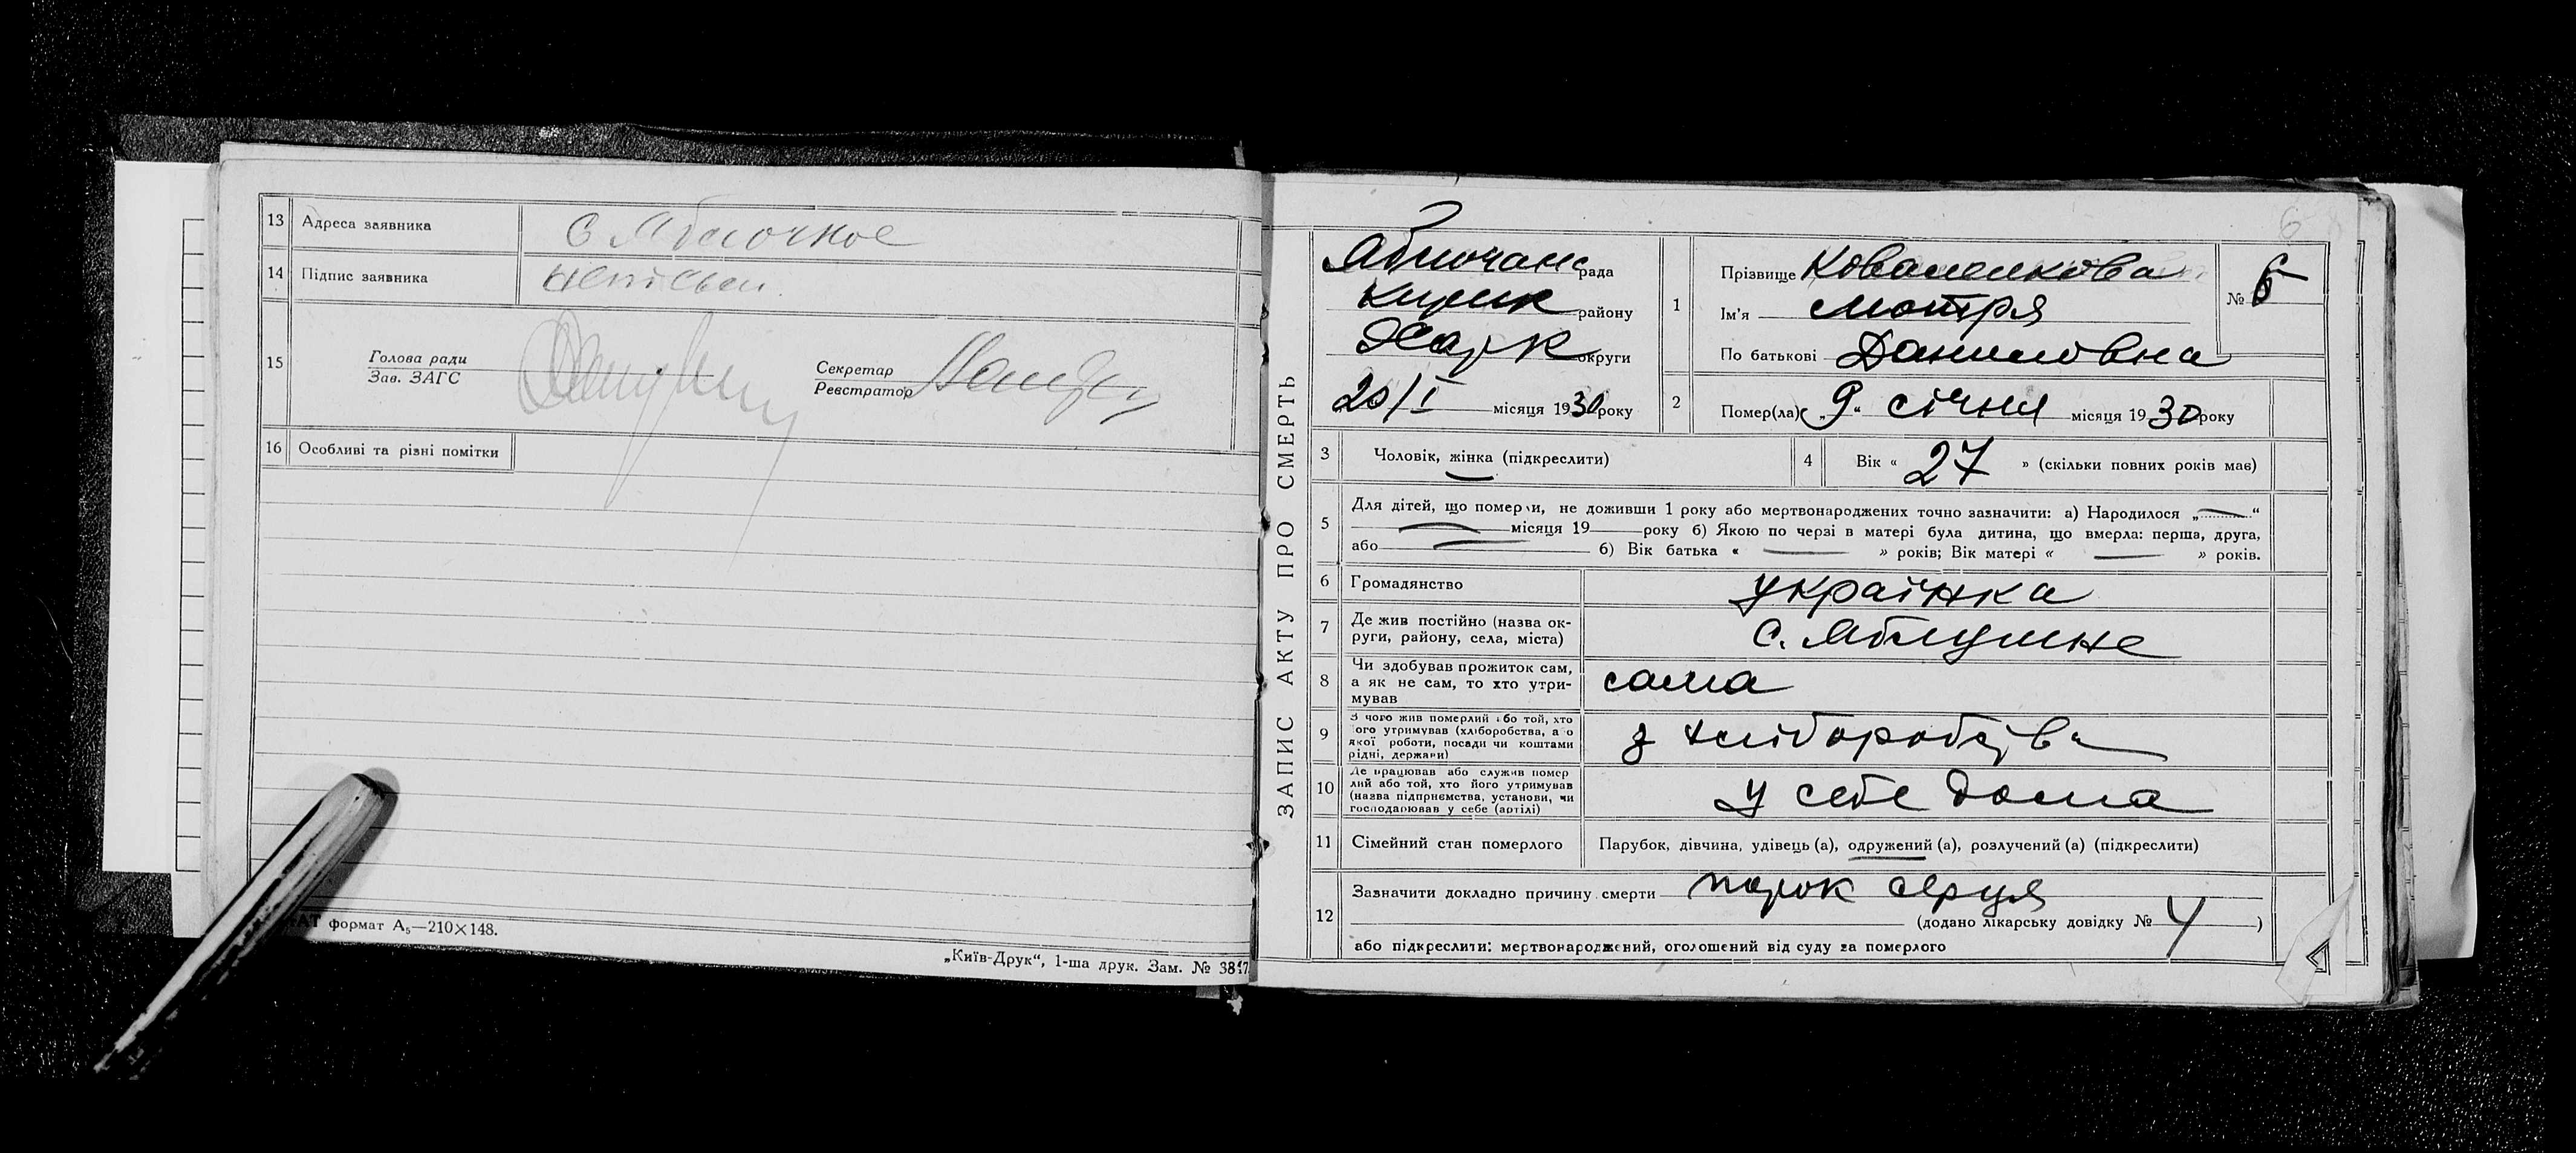 13 Адреса заявника с Яблочное
14 Підпис заявника
15 Голова ради
Зав. ЗАГС
Секретар
Реєстратор
16 Особливі та різні помітки
формат А₅—210×148.
„Київ-Друк“, 1-ша друк. Зам. №
ЗАПИС АКТУ ПРО СМЕРТЬ
6
Яблочанс рада
района району
Харк округи
20/I місяця 1930 року
1 Прізвище Коваленкова
Ім'я Мотря
По батькові Даниловна
№ 6
2 Помер(ла) „9“ січня місяця 1930 року
3 Чоловік, жінка (підкреслити)
4 Вік « 27 » (скільки повних років має)
5 Для дітей, що померли, не доживши 1 року або мертвонароджених точно зазначити: а) Народилося „ “
місяця 19 року б) Якою по черзі в матері була дитина, що вмерла: перша, друга,
або б) Вік батька « » років; Вік матері « » років.
6 Громадянство українка
7 Де жив постійно (назва ок-
руги, району, села, міста) с. Яблушне
8 Чи здобував прожиток сам,
а як не сам, то хто утри-
мував сама
9 З чого жив померлий або той, хто
його утримував (хліборобства, або
якої роботи, посади чи коштами
рідні, держави) з хліборобства
10 Де працював або служив помер
лий або той, хто його утримував
(назва підприємства, установи, чи
господарював у себе (артілі) у себе дома
11 Сімейний стан померлого Парубок, дівчина, удівець (а), одружений (а), розлучений (а) (підкреслити)
12 Зазначити докладно причину смерти порок серця
(додано лікарську довідку № 4 )
або підкреслити: мертвонароджений, оголошений від суду за померлого